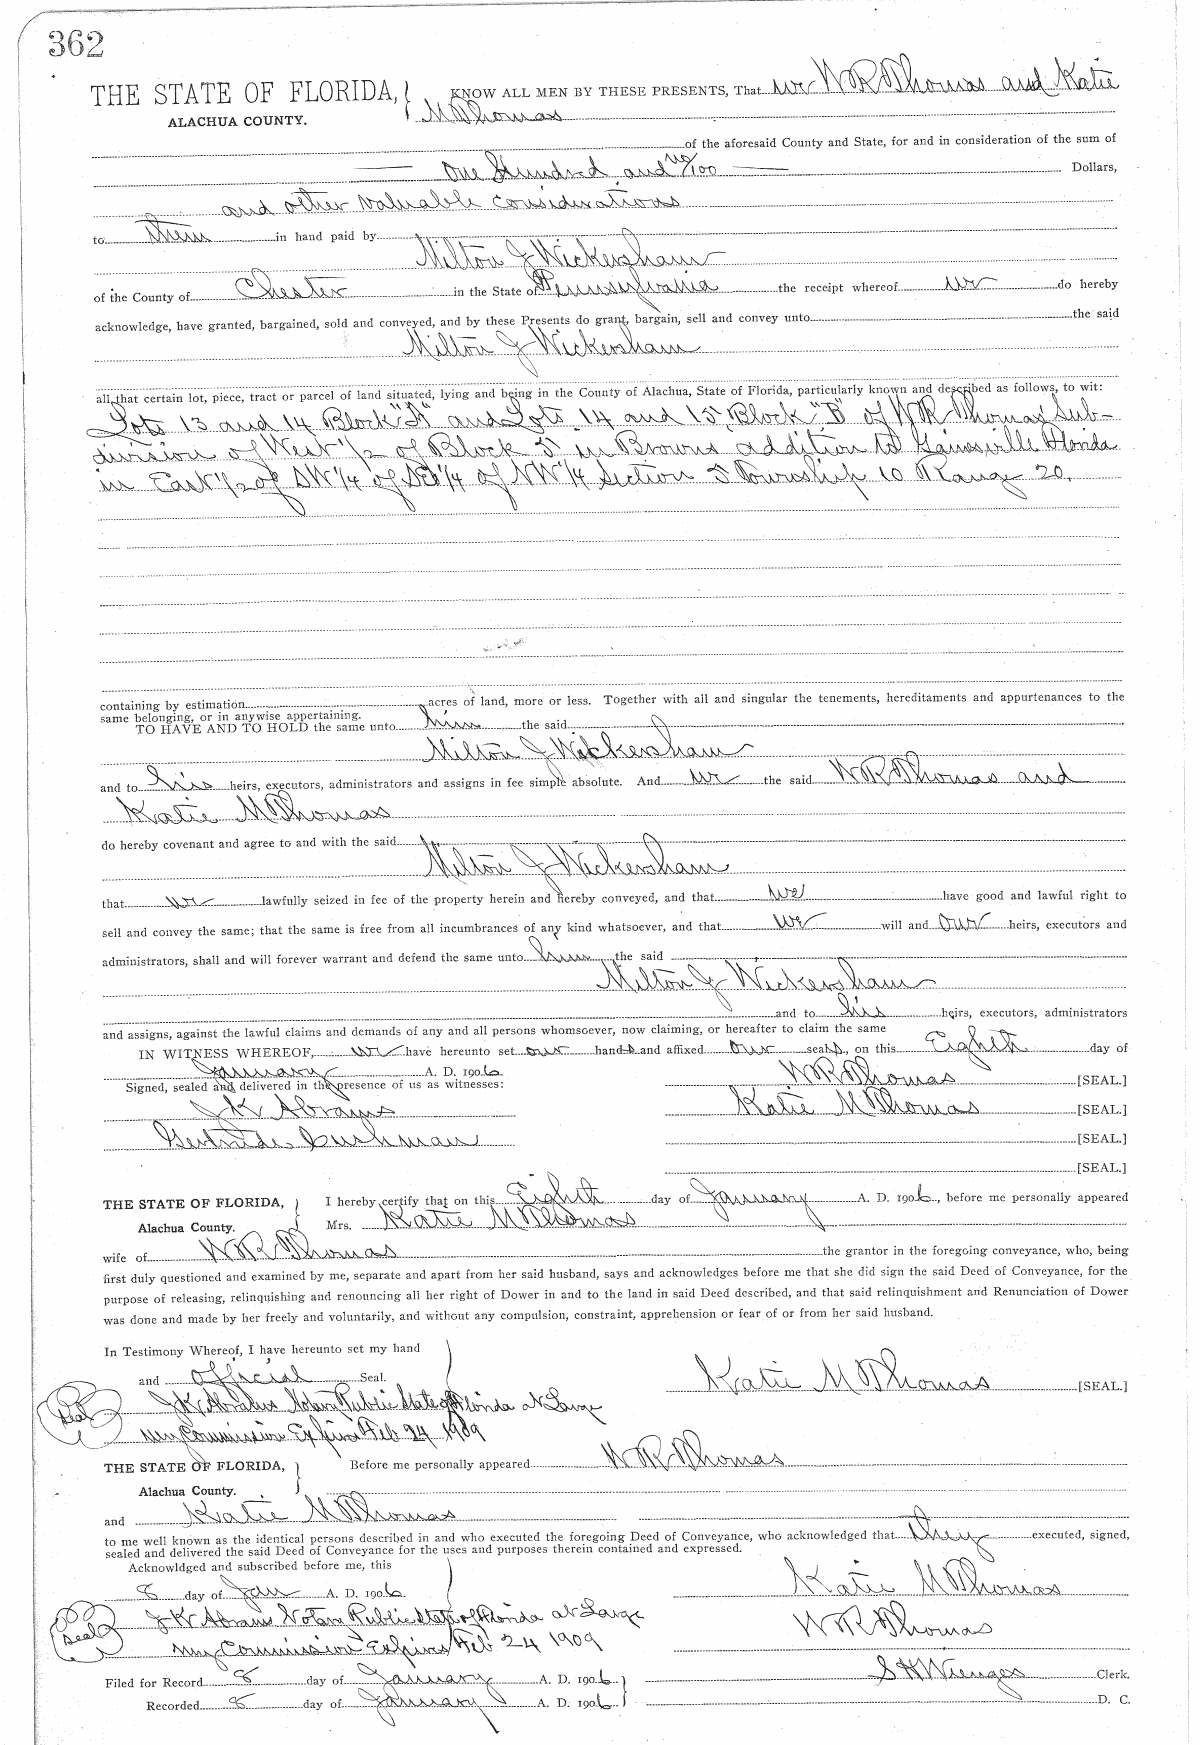 362
THE STATE OF FLORIDA, KNOW ALL MEN BY THESE PRESENTS, That we W R Thomas and Katie
ALACHUA COUNTY. M Thomas
of the aforesaid County and State, for and in consideration of the sum of
One Hundred and no/100 Dollars,
and other valuable considerations
to them in hand paid by
Milton J Wickersham
of the County of Chester in the State of Pennsylvania the receipt whereof we do hereby
acknowledge, have granted, bargained, sold and conveyed, and by these Presents do grant, bargain, sell and convey unto the said
Milton J Wickersham
all that certain lot, piece, tract or parcel of land situated, lying and being in the County of Alachua, State of Florida, particularly known and described as follows, to wit:
Lots 13 and 14 Block "A" and Lots 14 and 15, Block "B" of W R Thomas' Sub-
division of West 1/2 of Block 3 in Browns addition to Gainesville Florida
in East 1/2 of SW 1/4 of SE 1/4 of NW 1/4 Section 5 Township 10 Range 20.
containing by estimation acres of land, more or less. Together with all and singular the tenements, hereditaments and appurtenances to the
same belonging, or in anywise appertaining.
TO HAVE AND TO HOLD the same unto him the said
Milton J Wickersham
and to his heirs, executors, administrators and assigns in fee simple absolute. And we the said W R Thomas and
Katie M Thomas
do hereby covenant and agree to and with the said
Milton J Wickersham
that we lawfully seized in fee of the property herein and hereby conveyed, and that we have good and lawful right to
sell and convey the same; that the same is free from all incumbrances of any kind whatsoever, and that we will and our heirs, executors and
administrators, shall and will forever warrant and defend the same unto him the said
Milton J Wickersham
and to his heirs, executors, administrators
and assigns, against the lawful claims and demands of any and all persons whomsoever, now claiming, or hereafter to claim the same
IN WITNESS WHEREOF, we have hereunto set our hands and affixed our seals, on this Eighth day of
January A. D. 1906 W R Thomas [SEAL.]
Signed, sealed and delivered in the presence of us as witnesses:
J K Abrams Katie M Thomas [SEAL.]
Gertrude Cushman [SEAL.]
[SEAL.]
THE STATE OF FLORIDA, I hereby certify that on this Eighth day of January A. D. 1906, before me personally appeared
Alachua County. Mrs. Katie M Thomas
wife of W R Thomas the grantor in the foregoing conveyance, who, being
first duly questioned and examined by me, separate and apart from her said husband, says and acknowledges before me that she did sign the said Deed of Conveyance, for the
purpose of releasing, relinquishing and renouncing all her right of Dower in and to the land in said Deed described, and that said relinquishment and Renunciation of Dower
was done and made by her freely and voluntarily, and without any compulsion, constraint, apprehension or fear of or from her said husband.
In Testimony Whereof, I have hereunto set my hand
and official Seal. Katie M Thomas [SEAL.]
Seal J K Abrams Notary Public State of Florida at Large
My Commission Expires Feb 24 1909
THE STATE OF FLORIDA, Before me personally appeared W R Thomas
Alachua County.
and Katie M Thomas
to me well known as the identical persons described in and who executed the foregoing Deed of Conveyance, who acknowledged that they executed, signed,
sealed and delivered the said Deed of Conveyance for the uses and purposes therein contained and expressed.
Acknowldged and subscribed before me, this
8 day of Jan A. D. 1906 Katie M Thomas
Seal J K Abrams Notary Public State of Florida at Large W R Thomas
My Commission Expires Feb 24 1909
Filed for Record 8 day of January A. D. 1906 S H Wienges Clerk.
Recorded 8 day of January A. D. 1906 D. C.